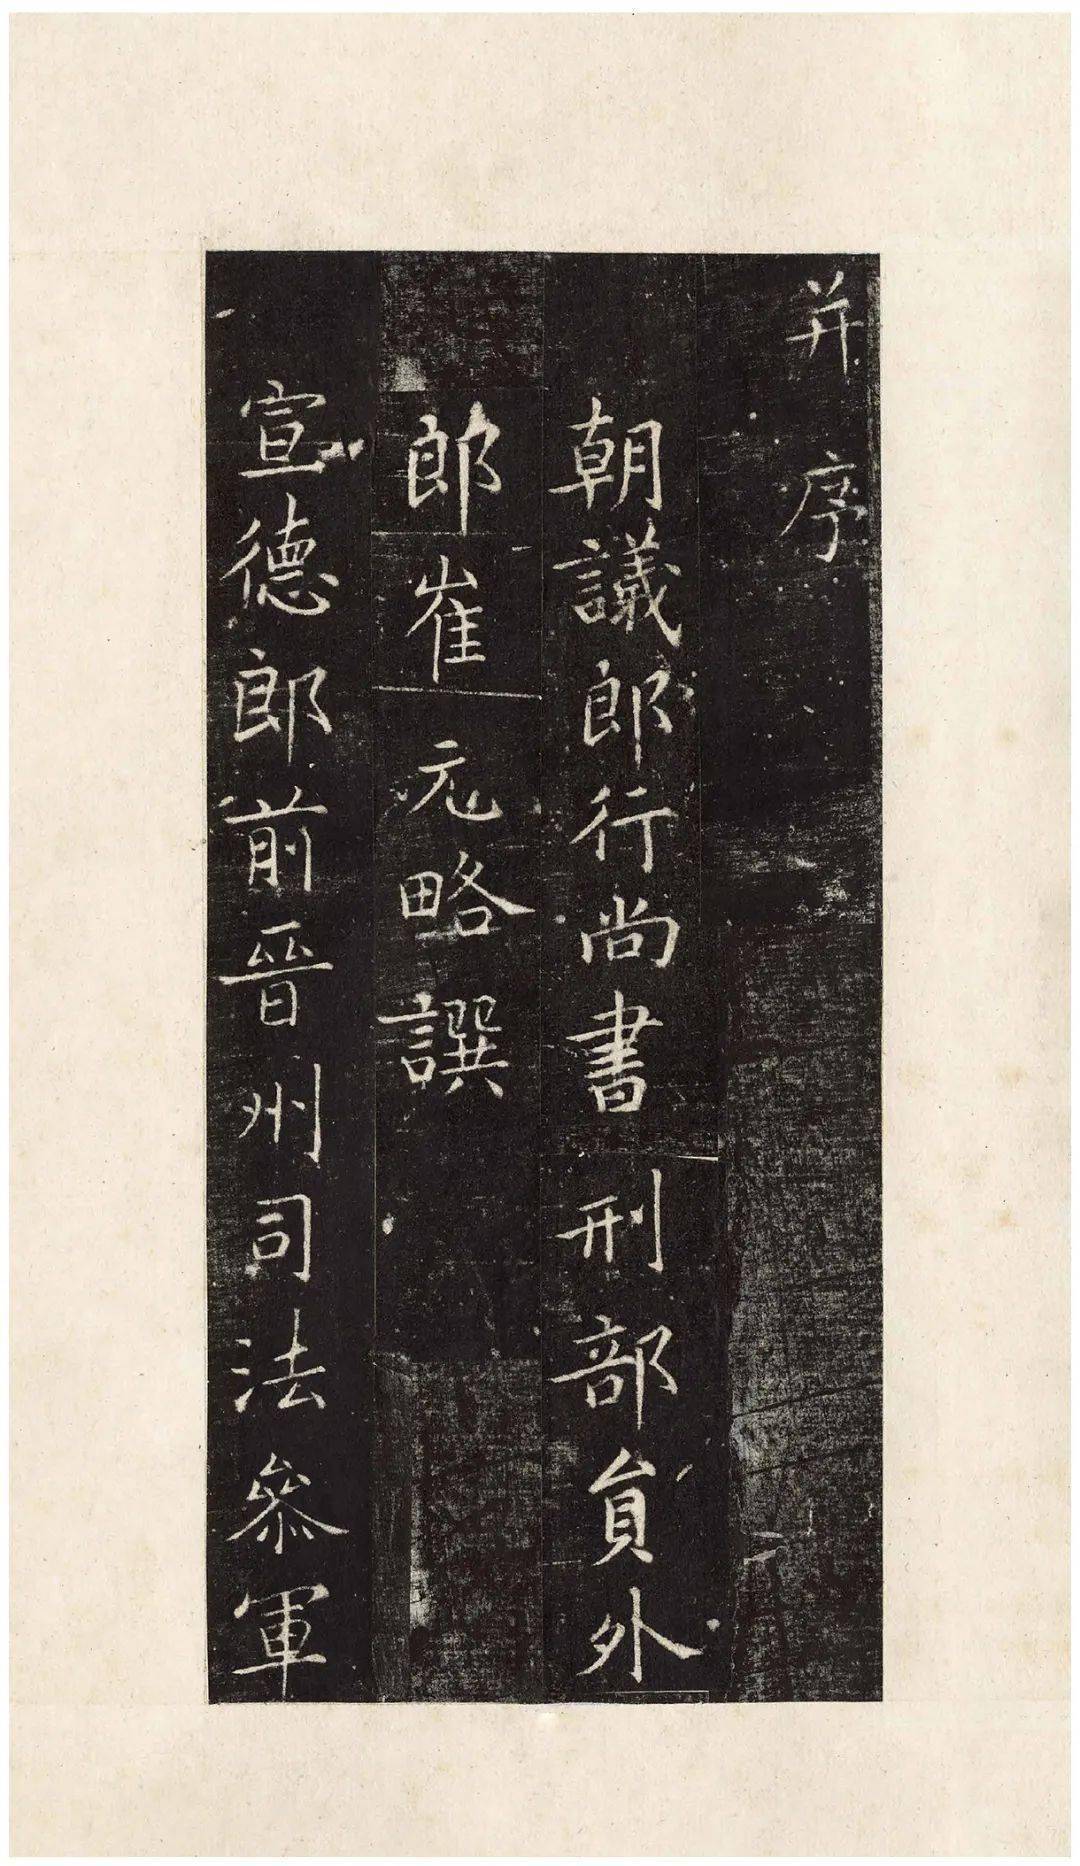 并序
朝議郎行尚書刑部員外
郎崔元略撰
宣德郎前晉州司法參軍